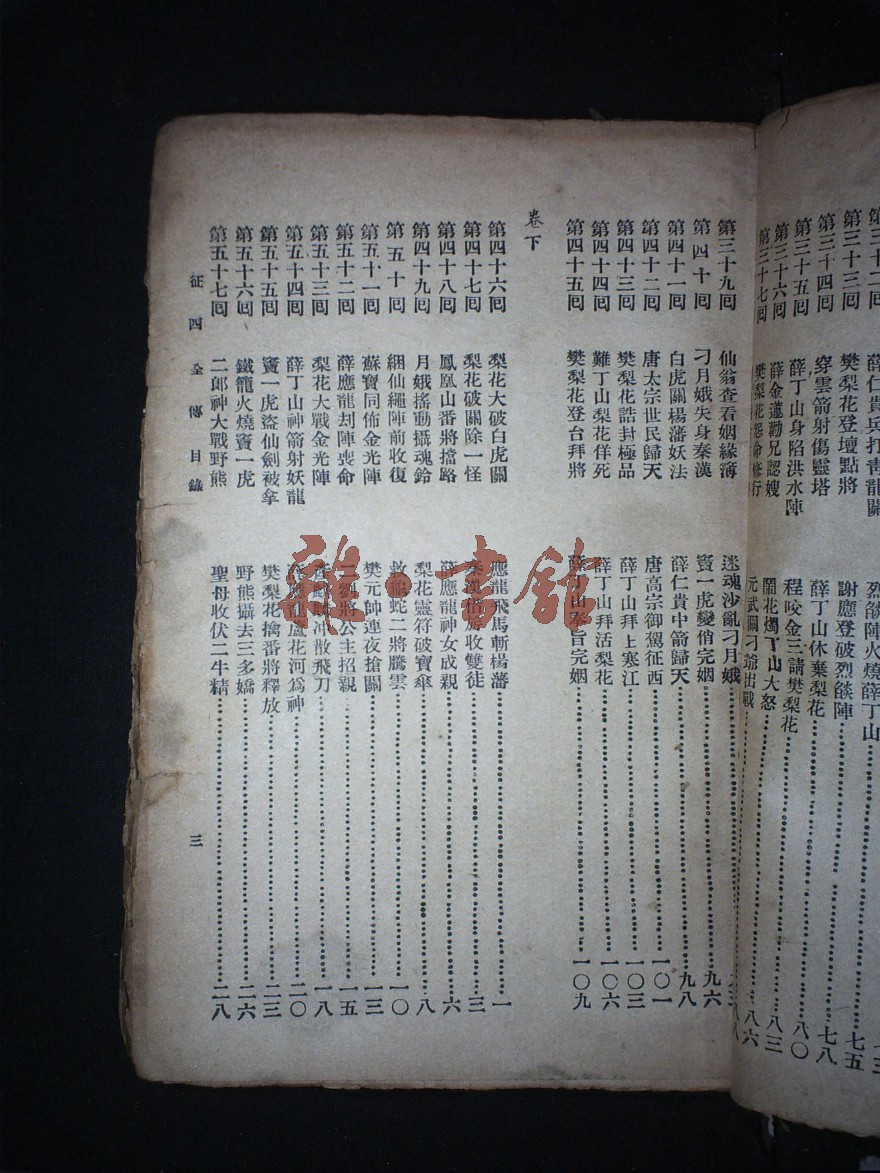 第三十二回 薛仁貴兵打青龍關 烈燄陣火燒薛丁山
第三十三回 樊梨花登壇點將 謝應登破烈燄陣 七五
第三十四回 穿雲箭射傷靈塔 薛丁山休棄梨花 七八
第三十五回 薛丁山身陷洪水陣 程咬金三請樊梨花 八〇
第三十六回 薛金蓮勸兄認嫂 鬧花燭丁山大怒 八三
第三十七回 樊梨花怨命修行 元武關刁爺出戰 八六
第三十九回 仙翁查看姻緣簿 迷魂沙亂刁月娥
第四十回 刁月娥失身秦漢 竇一虎變俏完姻 九六
第四十一回 白虎關楊藩妖法 薛仁貴中箭歸天 九八
第四十二回 唐太宗世民歸天 唐高宗御駕征西 一〇一
第四十三回 樊梨花誥封極品 薛丁山拜上寒江 一〇三
第四十四回 難丁山梨花佯死 薛丁山拜活梨花 一〇六
第四十五回 樊梨花登台拜將 薛丁山奉旨完姻 一〇九
卷下
第四十六回 梨花大破白虎關 應龍飛馬斬楊藩 一
第四十七回 梨花破關除一怪 收雙徒 三
第四十八回 鳳凰山番將擋路 薛應龍神女成親 六
第四十九回 月娥搖動攝魂鈴 梨花靈符破寶傘 八
第五十回 綑仙繩陣前收復 救龍蛇二將騰雲 一〇
第五十一回 蘇寶同佈金光陣 樊元帥連夜搶關 一三
第五十二回 薛應龍刦陣喪命 二劉將公主招親 一五
第五十三回 梨花大戰金光陣 冲散飛刀 一八
第五十四回 薛丁山神箭射妖龍 蘆花河爲神 二〇
第五十五回 竇一虎盜仙劍被拿 樊梨花擒番將釋放 二三
第五十六回 鐵龍火燒竇一虎 野熊攝去三多嬌 二六
第五十七回 二郎神大戰野熊 聖母收伏二牛精 二八
征四全傳目錄 三
雜·書館